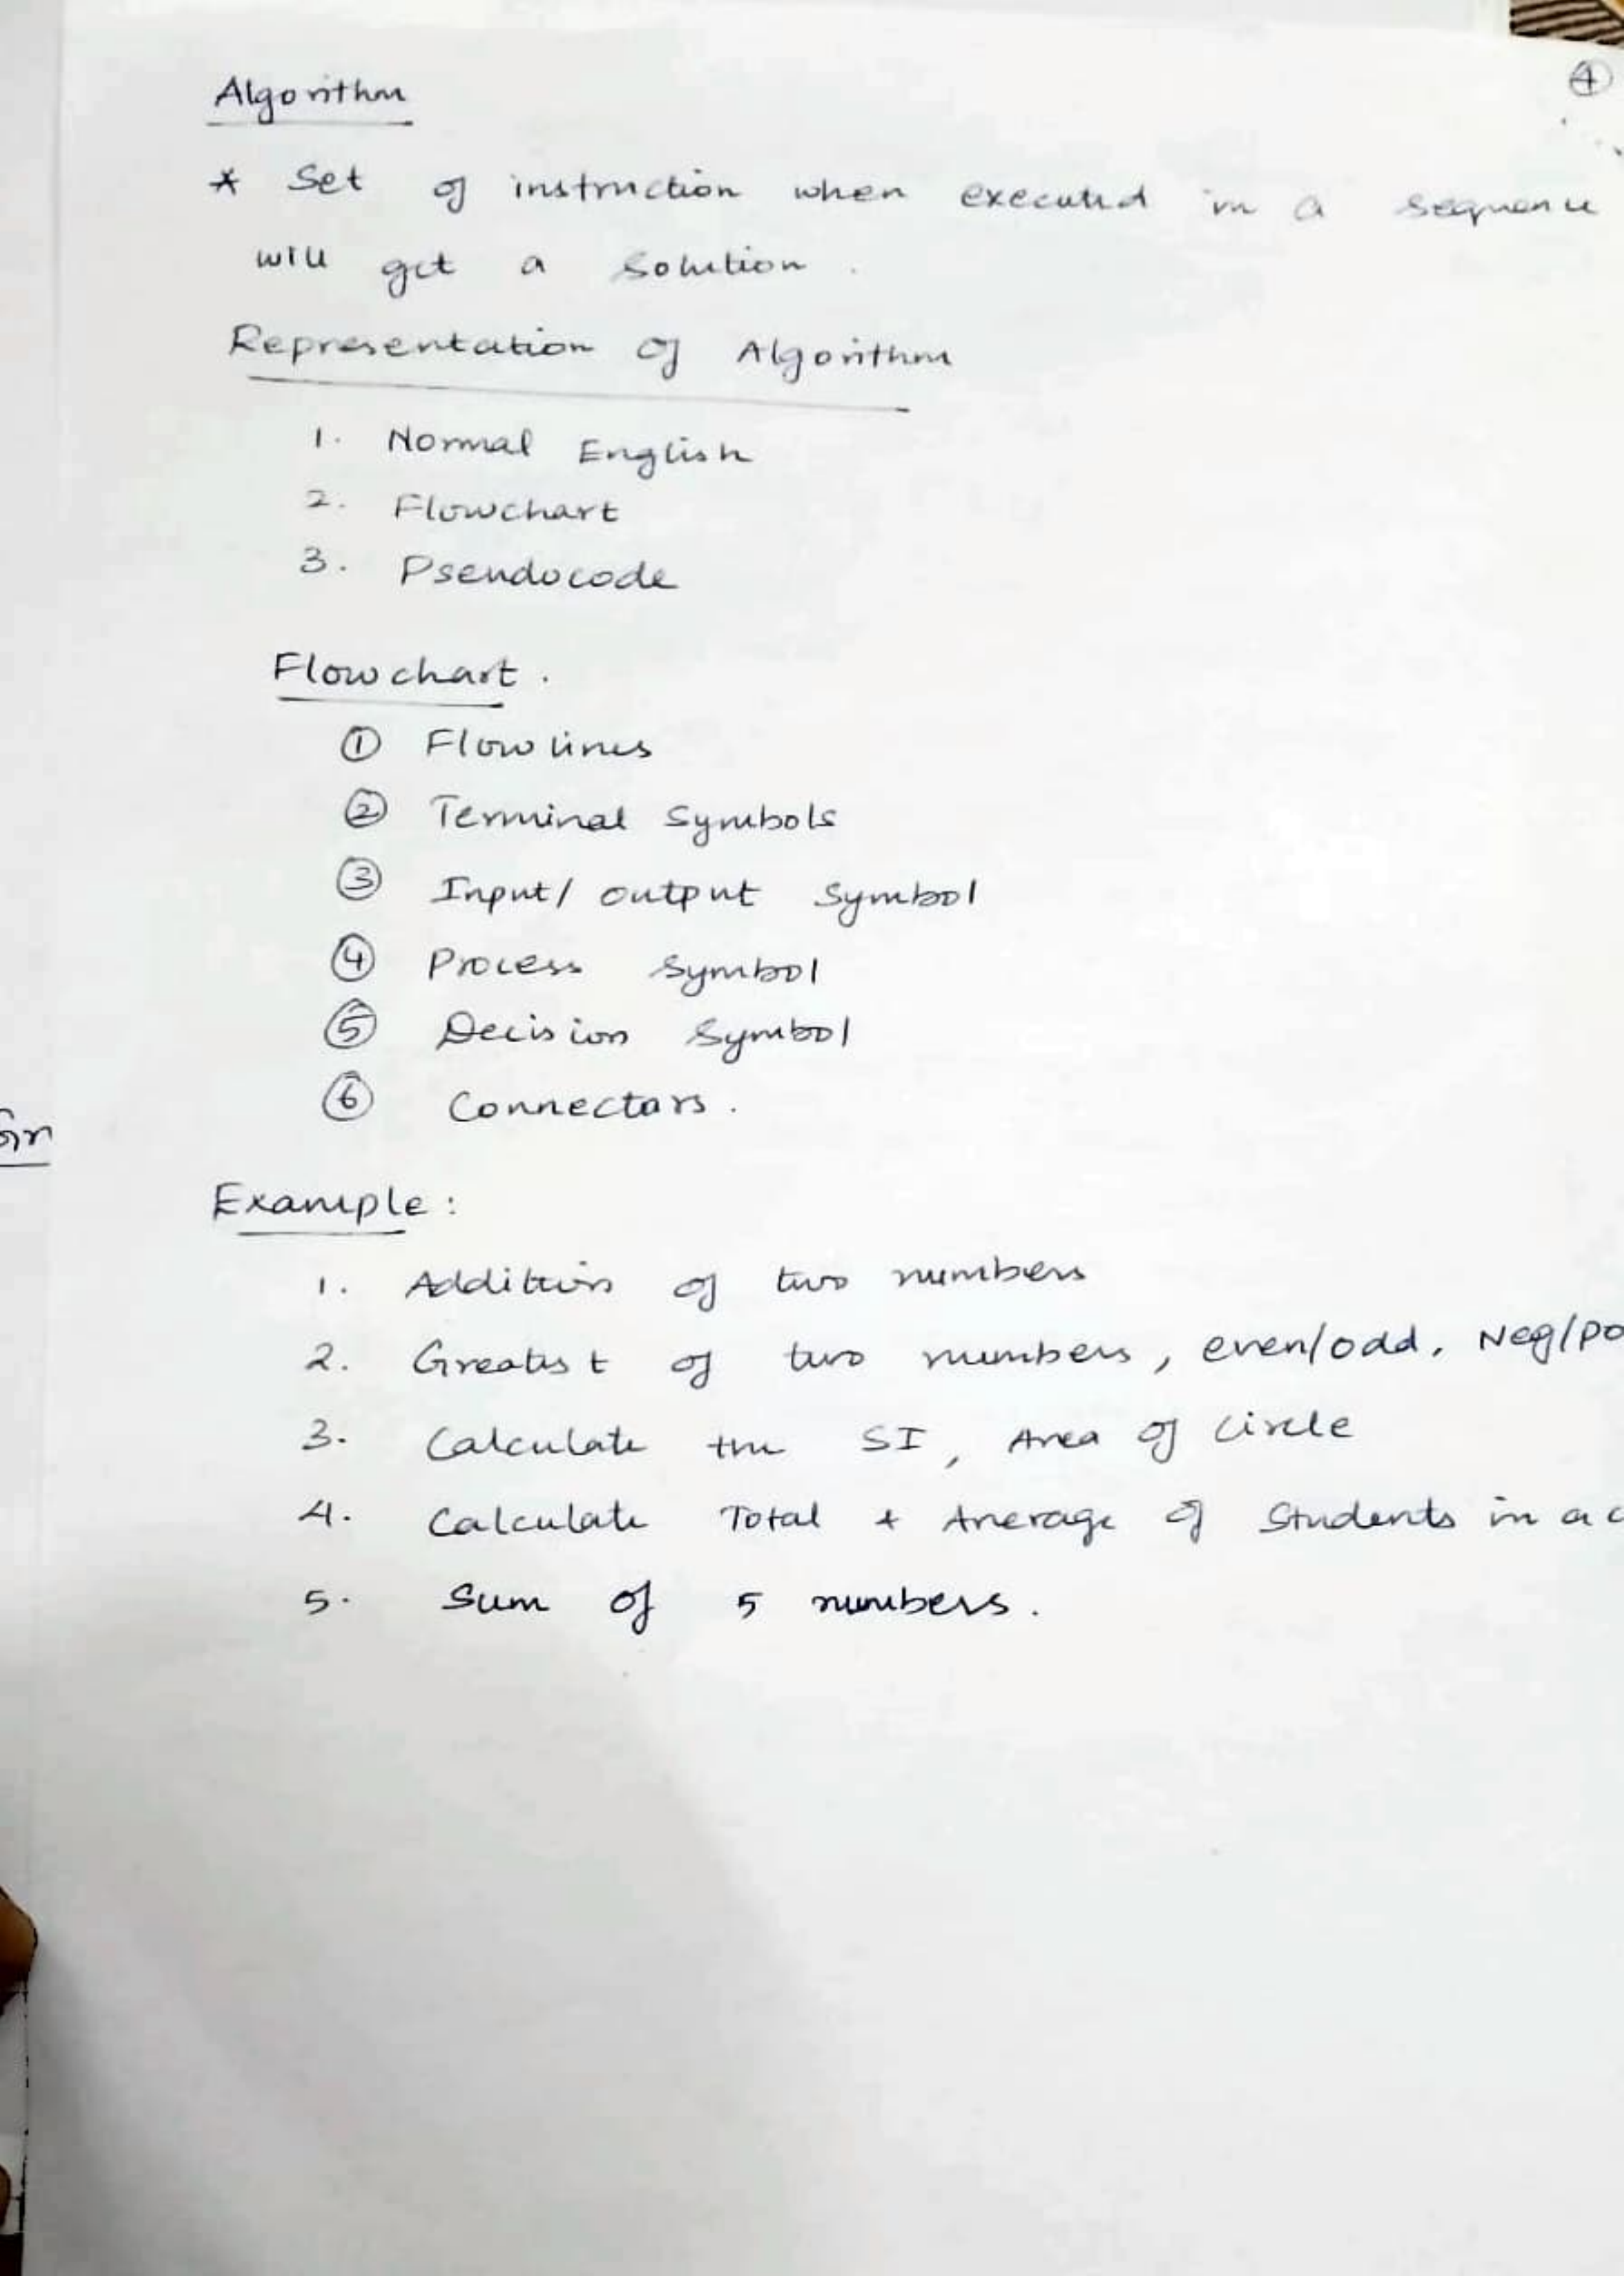 ④
Algorithm
* Set of instruction when executed in a sequence
will get a solution.
Representation of Algorithm
1. Normal English
2. Flowchart
3. Pseudocode
Flowchart.
① Flowlines
② Terminal Symbols
③ Input/output Symbol
④ Process Symbol
⑤ Decision Symbol
⑥ Connectors.
Example:
1. Addition of two numbers
2. Greatest of two numbers, even/odd, Neg/po
3. Calculate the SI, Area of Circle
4. Calculate Total + Average of Students in a c
5. Sum of 5 numbers.